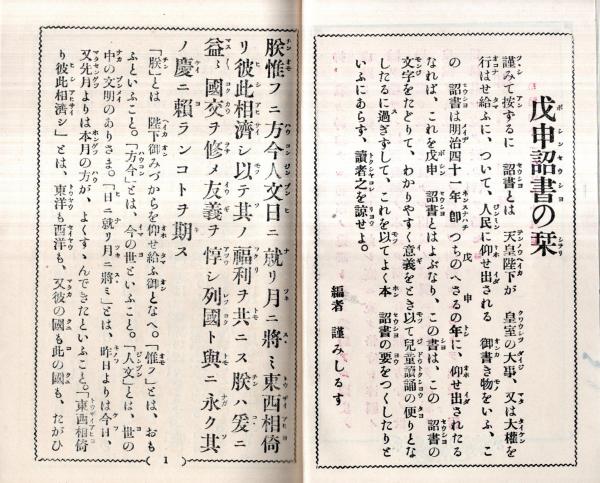 戊申詔書の栞
謹みて按ずるに　詔書とは　天皇陛下が　皇室の大事、又は大權を
行はせ給ふに、ついて、人民に仰せ出される　御書き物をいふ、こ
の　詔書は明治四十一年卽つちのへさるの年に　仰せ出されたる
なれば、これを戊申　詔書とはよぶなり、この書は、この　詔書の
文字をたどりて、わかりやすく意義をとき以て兒童讀誦の便りとな
したるに過ぎずして、これを以てよく本　詔書の要をつくしたりと
いふにあらず、讀者之を諒せよ。
編者　謹みしるす
朕惟フニ方今人文日ニ就リ月ニ將ミ東西相倚
リ彼此相濟シ以テ其ノ福利ヲ共ニス朕ハ爰ニ
益〻國交ヲ修メ友義ヲ惇シ列國ト與ニ永ク其
ノ慶ニ賴ランコトヲ期ス
「朕」とは　陛下御みづからを仰せ給ふ御となへ。「惟フ」とは、おも
ふといふこと。「方今」とは、今の世といふこと。「人文」とは、世の
中の文明のありさま。「日ニ就リ月ニ將ミ」とは、昨日よりは今日、
又先月よりは本月の方が、よくすゝんできたといふこと。「東西相倚
り彼此相濟シ」とは、東洋も西洋も、又彼の國も此の國も、たがひ
( 1 )